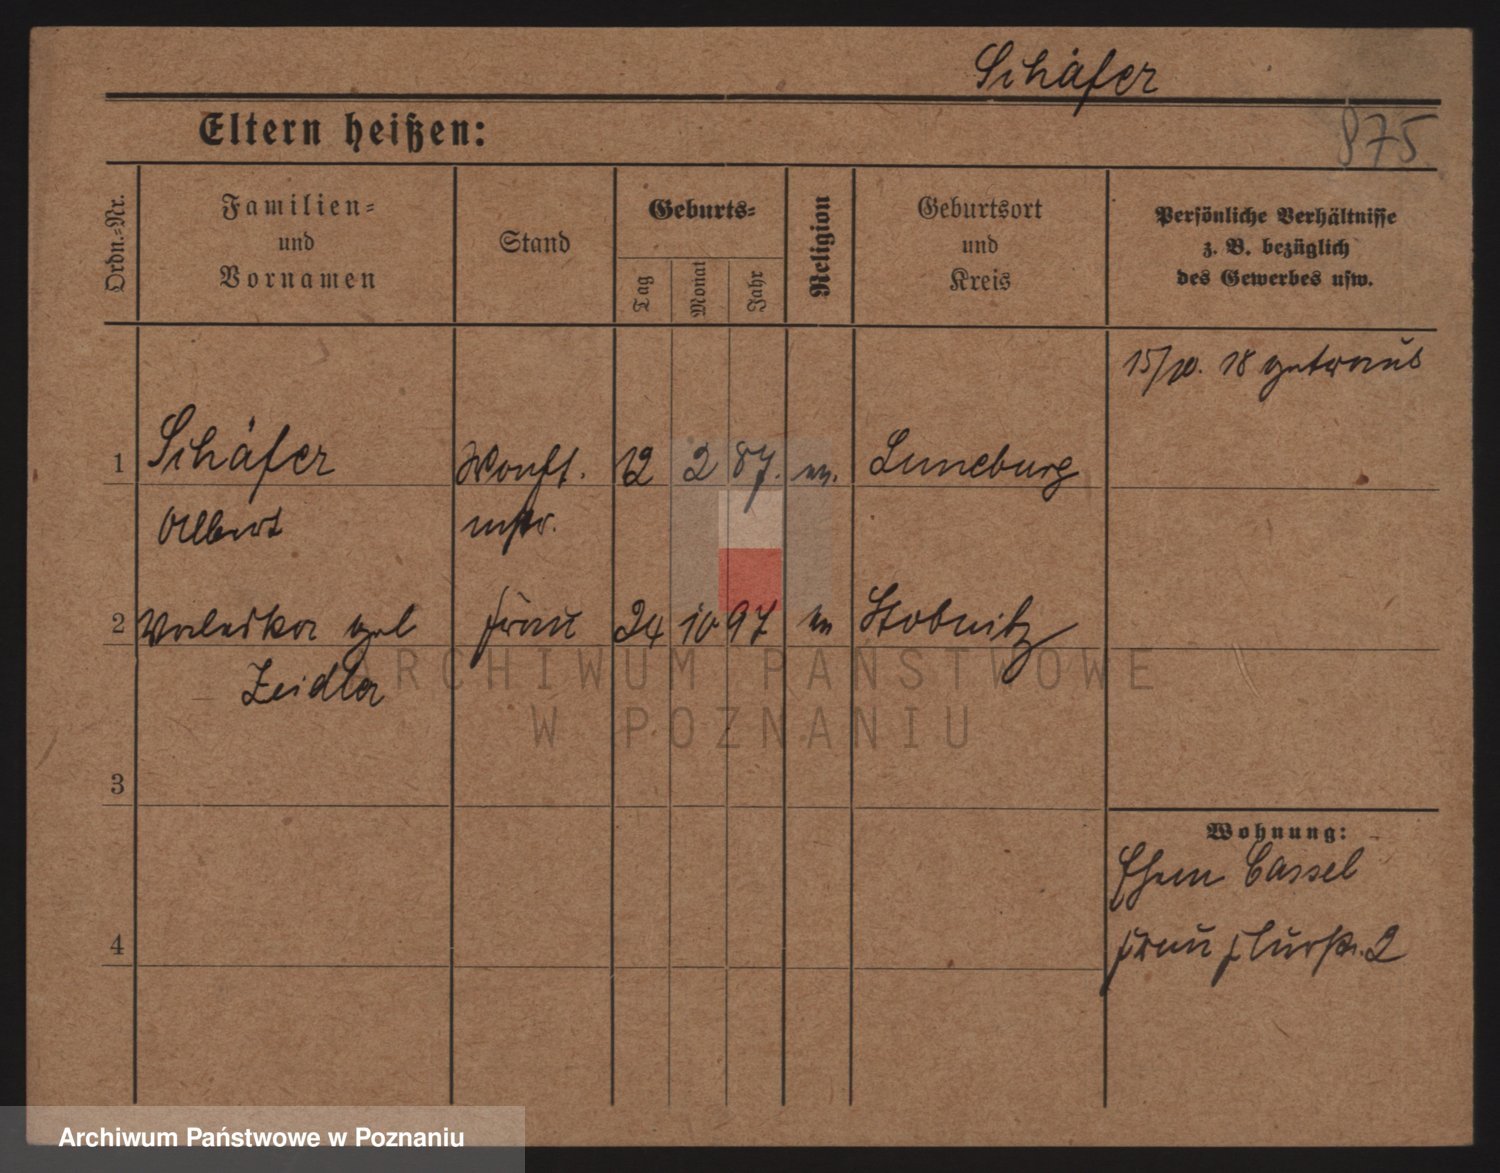 Schäfer
875
Eltern heißen:
Ordn.-Nr.
Familien-
und
Vornamen
Stand
Geburts-
Tag
Monat
Jahr
Religion
Geburtsort
und
Kreis
Persönliche Verhältnisse
z. B. bezüglich
des Gewerbes usw.
15/10. 18 getraut
1 Schäfer 12 2 87. ev. Luneburg
Albert mstr.
2 Valeska geb Frau 24 10 97 ev Stobnitz
Zeidler
ARCHIWUM PAŃSTWOWE
W POZNANIU
3
Wohnung:
Ehem Cassel
4
Frau Flurstr. 2
Archiwum Państwowe w Poznaniu